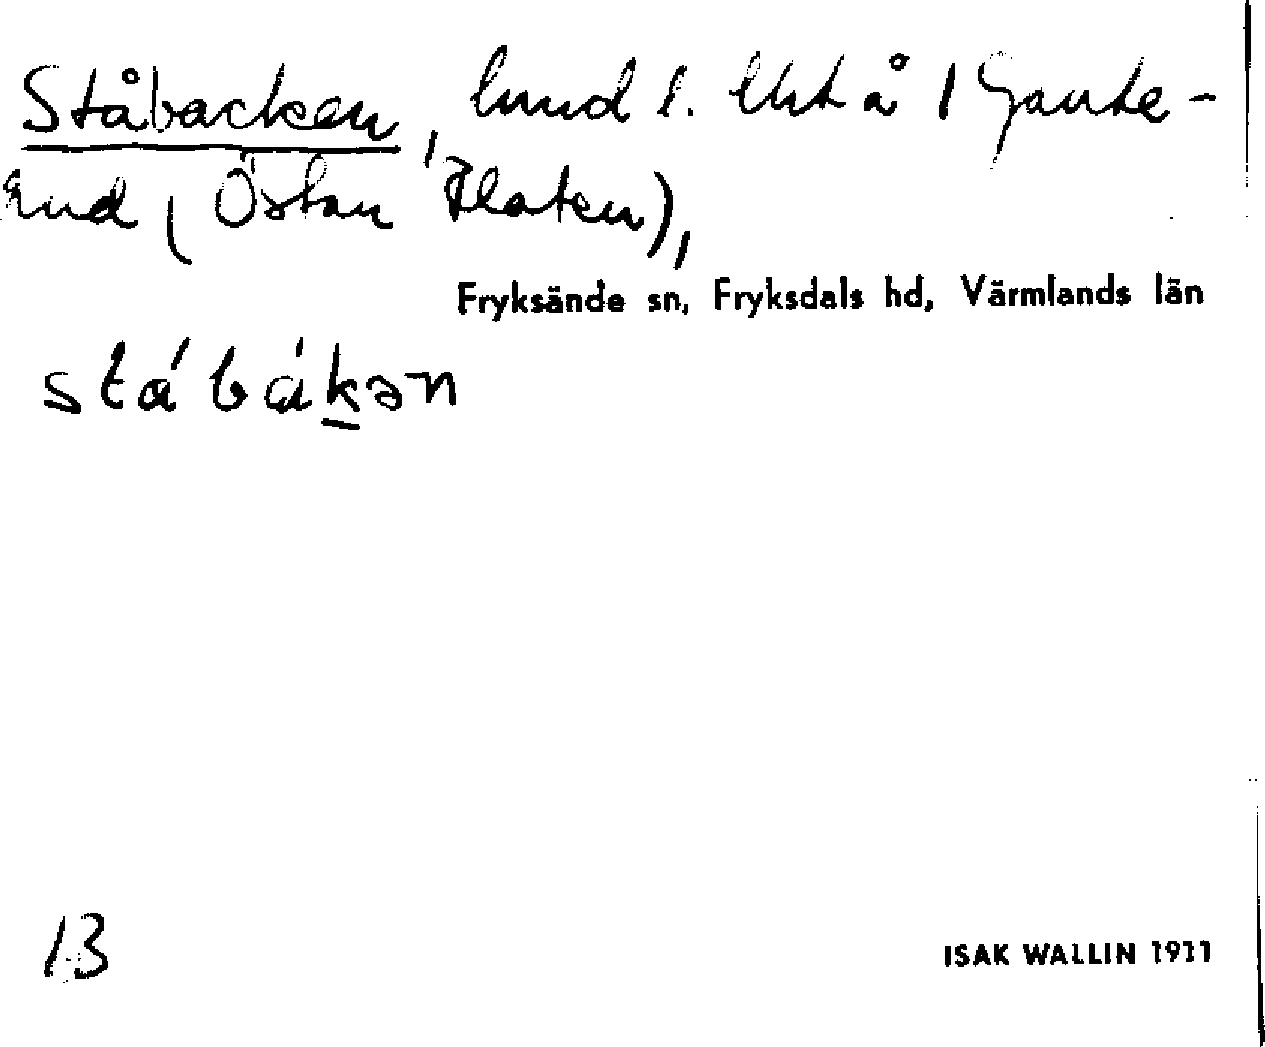 Ståbacken, lund l. Ukt å 1 Gaute-
rud (Östan Flaten),
Fryksände sn, Fryksdals hd, Värmlands län
stábákən
13
ISAK WALLIN 1911